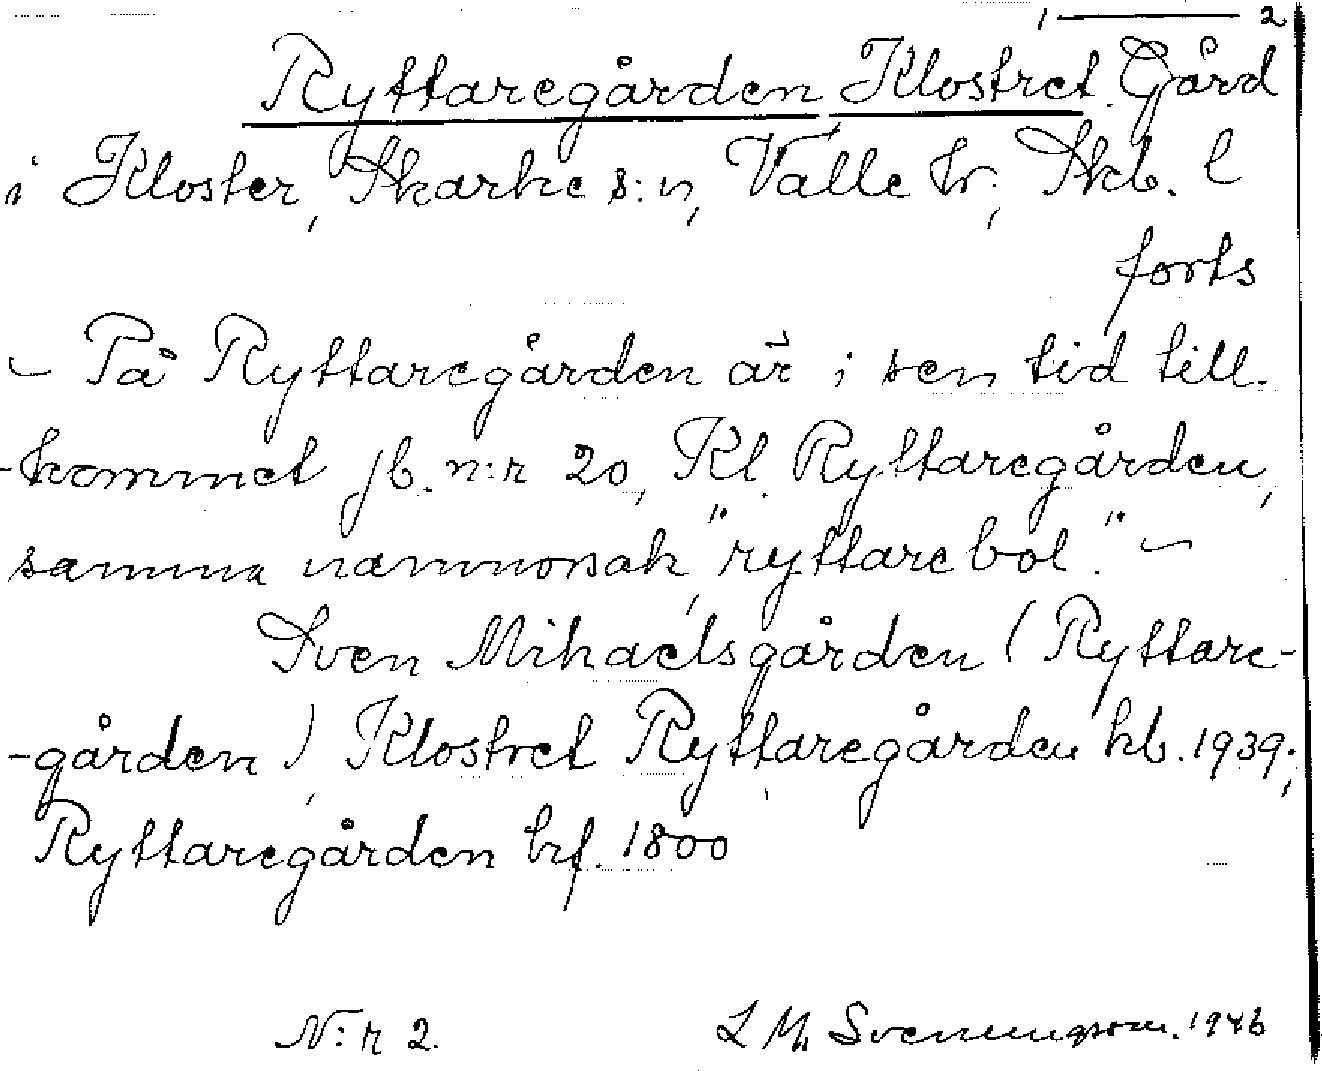 1 — 2
Ryttaregården Klostret. Gård
i Kloster, Skarke s:n, Valle hr., Skb. l
forts
– På Ryttaregården är i sen tid till-
-kommet jb. n:r 20, Kl. Ryttaregården,
samma namnorsak, "ryttarebol". –
Sven Mihaelsgården (Ryttare-
-gården), Klostret Ryttaregården kb. 1939;
Ryttaregården brf. 1800
N:r 2. L M. Svenungsson. 1946